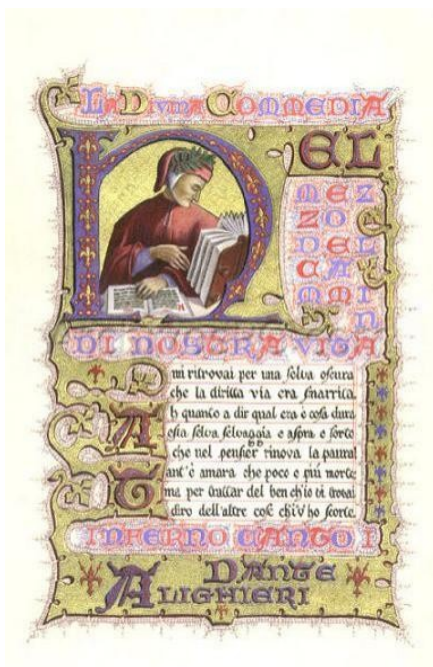 La Divina Commedia
NEL
MEZ
ZO
DEL
CA
MMI
N
DI NOSTRA VITA
mi ritrovai per una selva oscura
che la diritta via era smarrita
Ah quanto a dir qual era è cosa dura
esta selva selvaggia e aspra e forte
che nel pensier rinova la paura!
Tant'è amara che poco è più morte
ma per trattar del ben ch'io vi trovai
diro dell'altre cose ch'i v'ho scorte.
INFERNO CANTO I
DANTE
ALIGHIERI